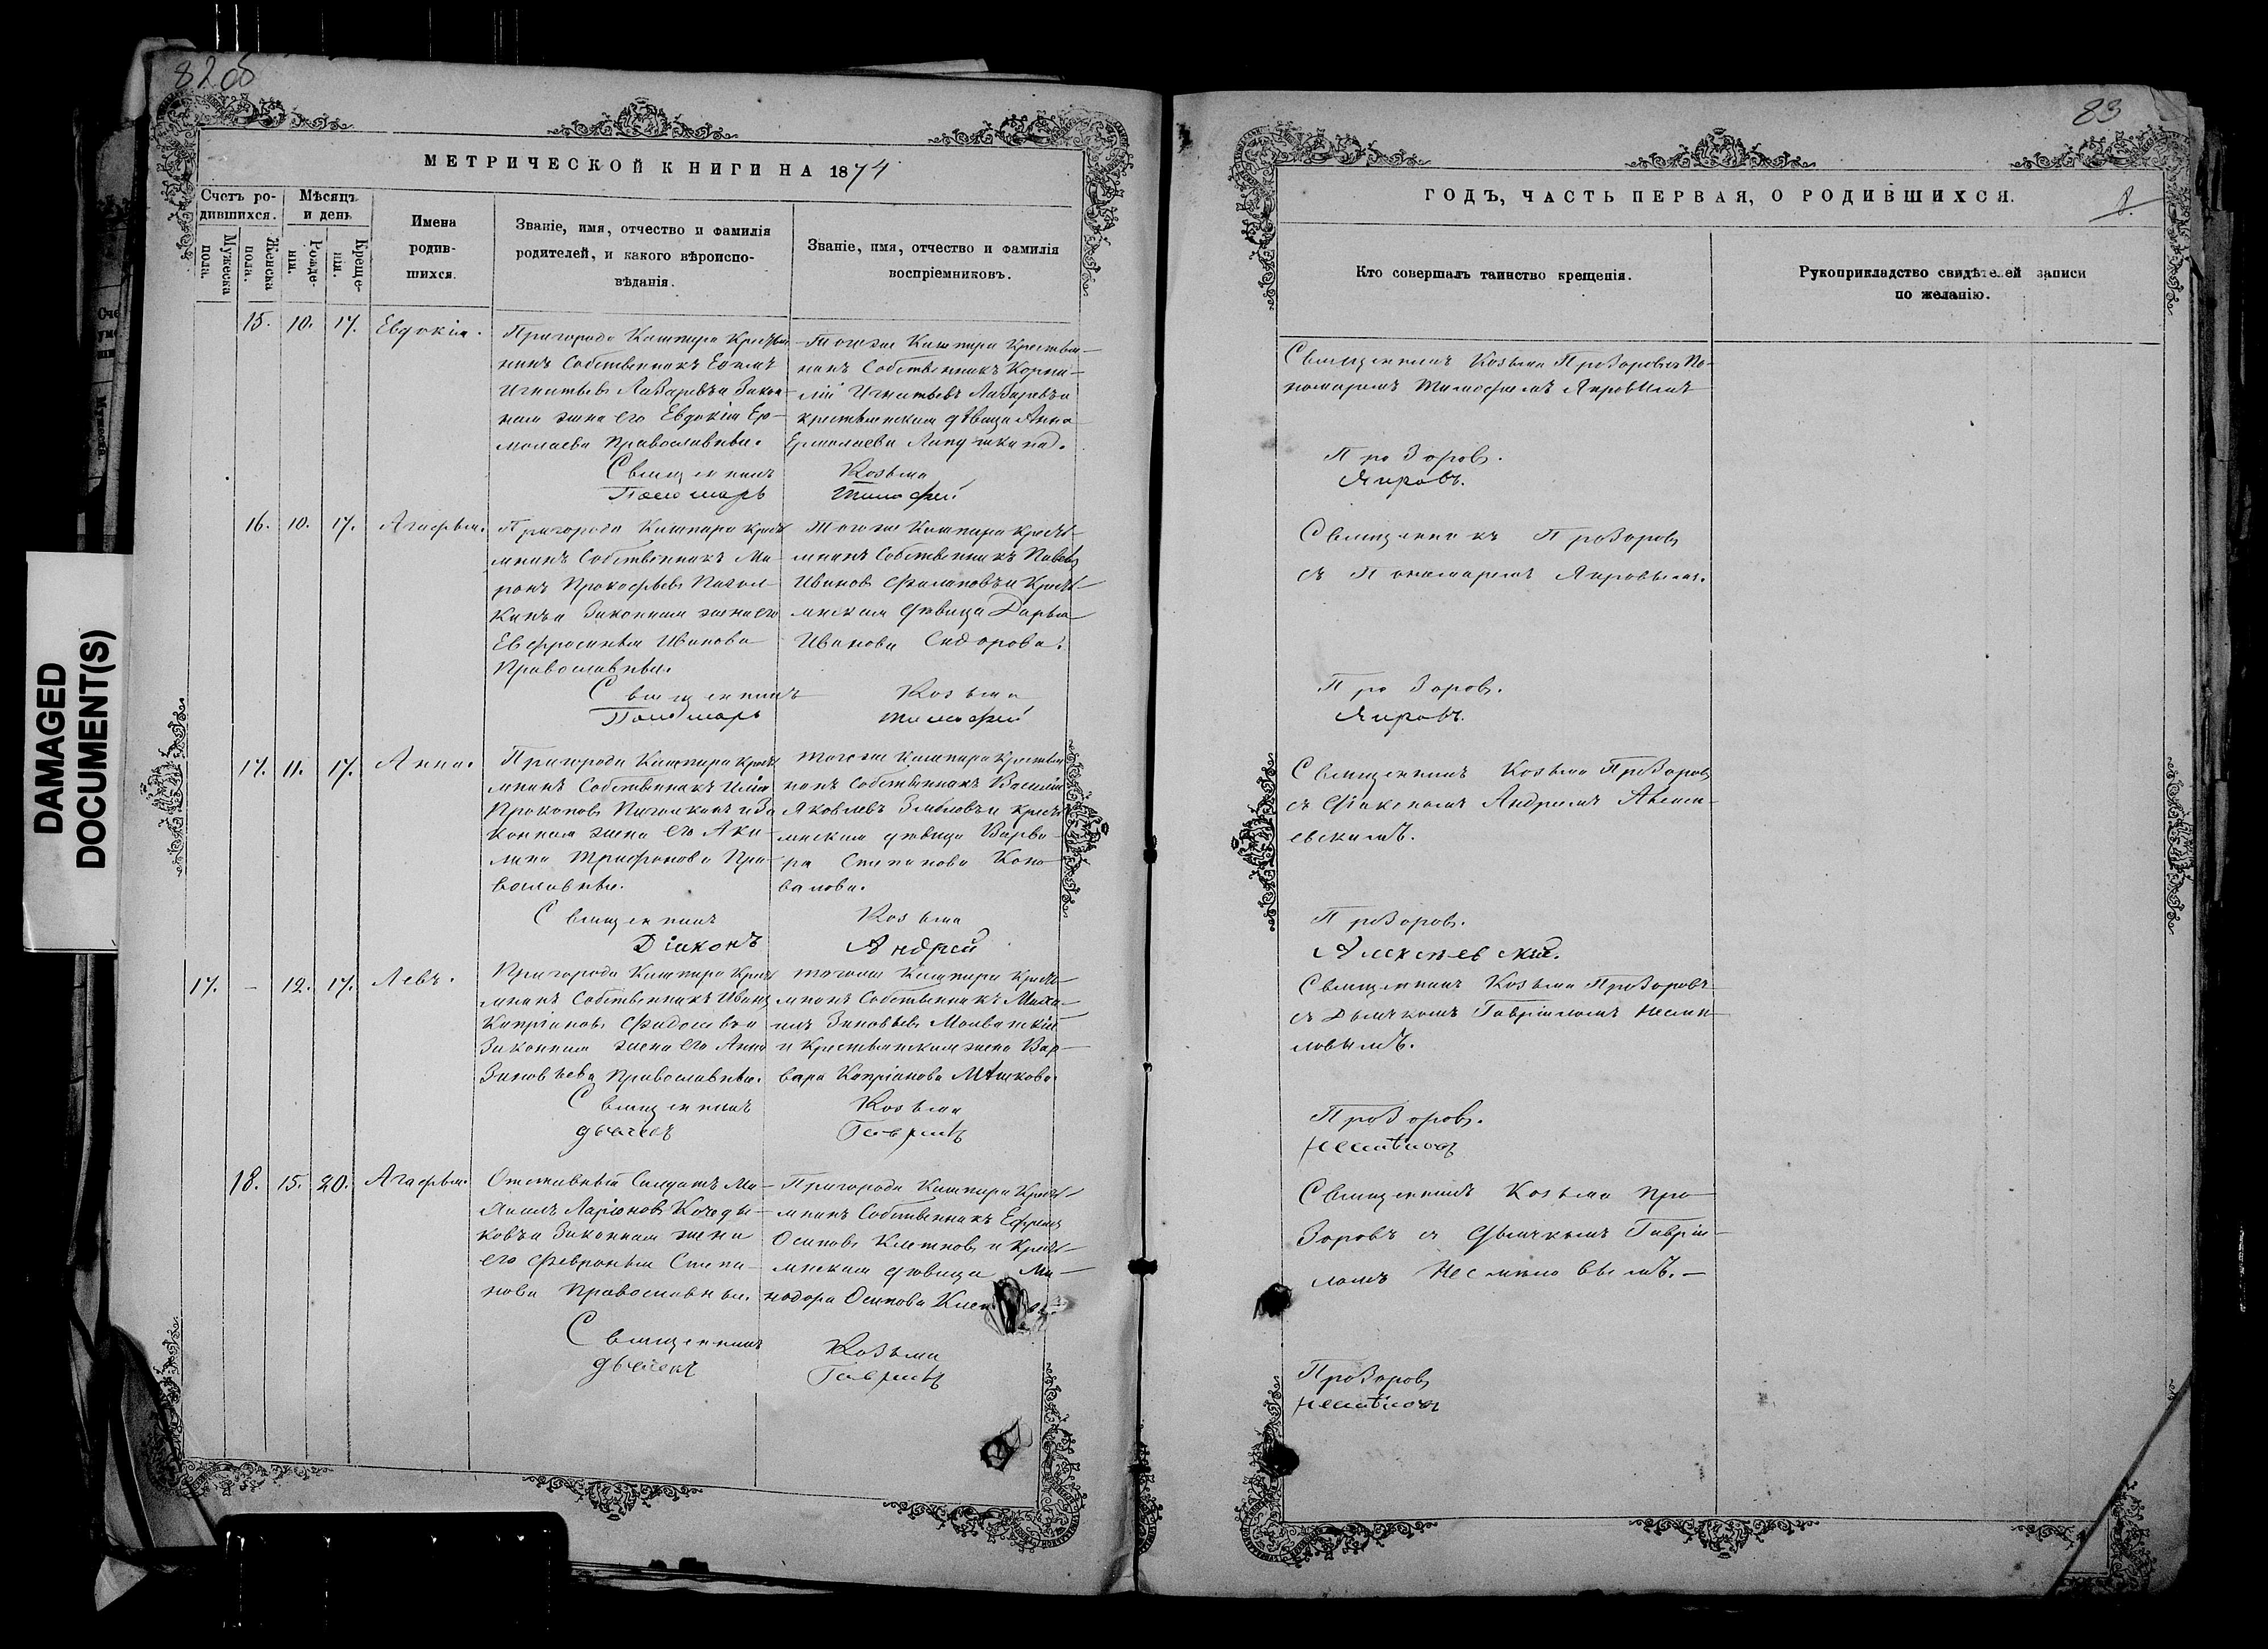 82об
МЕТРИЧЕСКОЙ КНИГИ НА 1874
Счетъ ро-
дившихся.
Мужеска пола.
Женска пола.
Мѣсяцъ
и день
Рожде-
нія.
Креще-
нія.
Имена
родив-
шихся.
Званіе, имя, отчество и фамилія
родителей, и какого вѣроиспо-
вѣданія.
Званіе, имя, отчество и фамилія
воспріемниковъ.
15. 10. 17. Евдокія.
Пригорода Кашпира Крестья
нинъ Собственникъ Ефимъ
Игнатьевъ Лазаревъ и Закон
ная жена его Евдокія Ер-
молаева Православные.
Тогоже Кашпира Крестья-
нинъ Собственникъ Корни-
лій Игнатьевъ Лазаревъ и
крестьянская дѣвица Анна
Ермолаева Лапушкина.
Священникъ Козьма
Пономарь Тимофей
16. 10. 17. Агафья.
Пригорода Кашпира Крест
янинъ Собственникъ Ми-
ронъ Прокофьевъ
Законная жена его
Евфросинья Иванова
Православные.
Тогоже Кашпира Крест-
янинъ Собственникъ Павелъ
Ивановъ Филаповъ и Крест-
янская дѣвица Дарья
Иванова Сидорова.
Священникъ Козьма
Пономарь Тимофей
17. 11. 17. Анна.
Пригорода Кашпира Крест
янинъ Собственникъ Илья
Прокоповъ и За
конная жена его Аку-
лина Трифонова Пра-
вославные.
Тогоже Кашпира Крестья
нинъ Собственникъ Василій
Яковлевъ и Крест
янская дѣвица Варва-
ра Степанова Коно-
валова.
Священникъ Козьма
Діаконъ Андрей
17. – 12. 17. Левъ.
Пригорода Кашпира Крест
янинъ Собственникъ Иванъ
Кипріановъ Федосѣевъ и
Законная жена его Анна
Зиновьева Православные.
Тогоже Кашпира Крест-
янинъ Собственникъ Миха-
илъ Зиновьевъ
и Крестьянская жена Вар-
вара Кипріанова Мѣшкова.
Священникъ Козьма
дьячекъ Гавріилъ
18. 15. 20. Агафья.
Отставный Солдатъ Ми-
хаилъ Ларіоновъ Кочеды-
ковъ и Законная жена
его Февронья Степа-
нова Православные.
Пригорода Кашпира Крест-
янинъ Собственникъ Ефремъ
Осиповъ Клетновъ и Крест-
янская дѣвица Ми-
нодора Осипова
Священникъ Козьма
дьячекъ Гавріилъ
83
ГОДЪ, ЧАСТЬ ПЕРВАЯ, О РОДИВШИХСЯ.
8.
Кто совершалъ таинство крещенія.
Рукоприкладство свидѣтелей записи
по желанію.
Священникъ Козьма Прозоровъ съ По-
номаремъ Тимофеемъ Яировымъ
Прозоровъ.
Яировъ.
Священникъ Прозоровъ
съ Пономаремъ Яировымъ.
Прозоровъ.
Яировъ.
Священникъ Козьма Прозоровъ
съ Діакономъ Андреемъ Алексѣ-
евскимъ.
Прозоровъ.
Алексѣевскій.
Священникъ Козьма Прозоровъ
съ Дьячкомъ Гавріиломъ Несмѣ-
ловымъ.
Прозоровъ.
Несмѣловъ
Священникъ Козьма Про-
зоровъ съ Дьячкомъ Гавріи-
ломъ Несмѣловымъ.–
Прозоровъ
Несмѣловъ
DAMAGED
DOCUMENT(S)